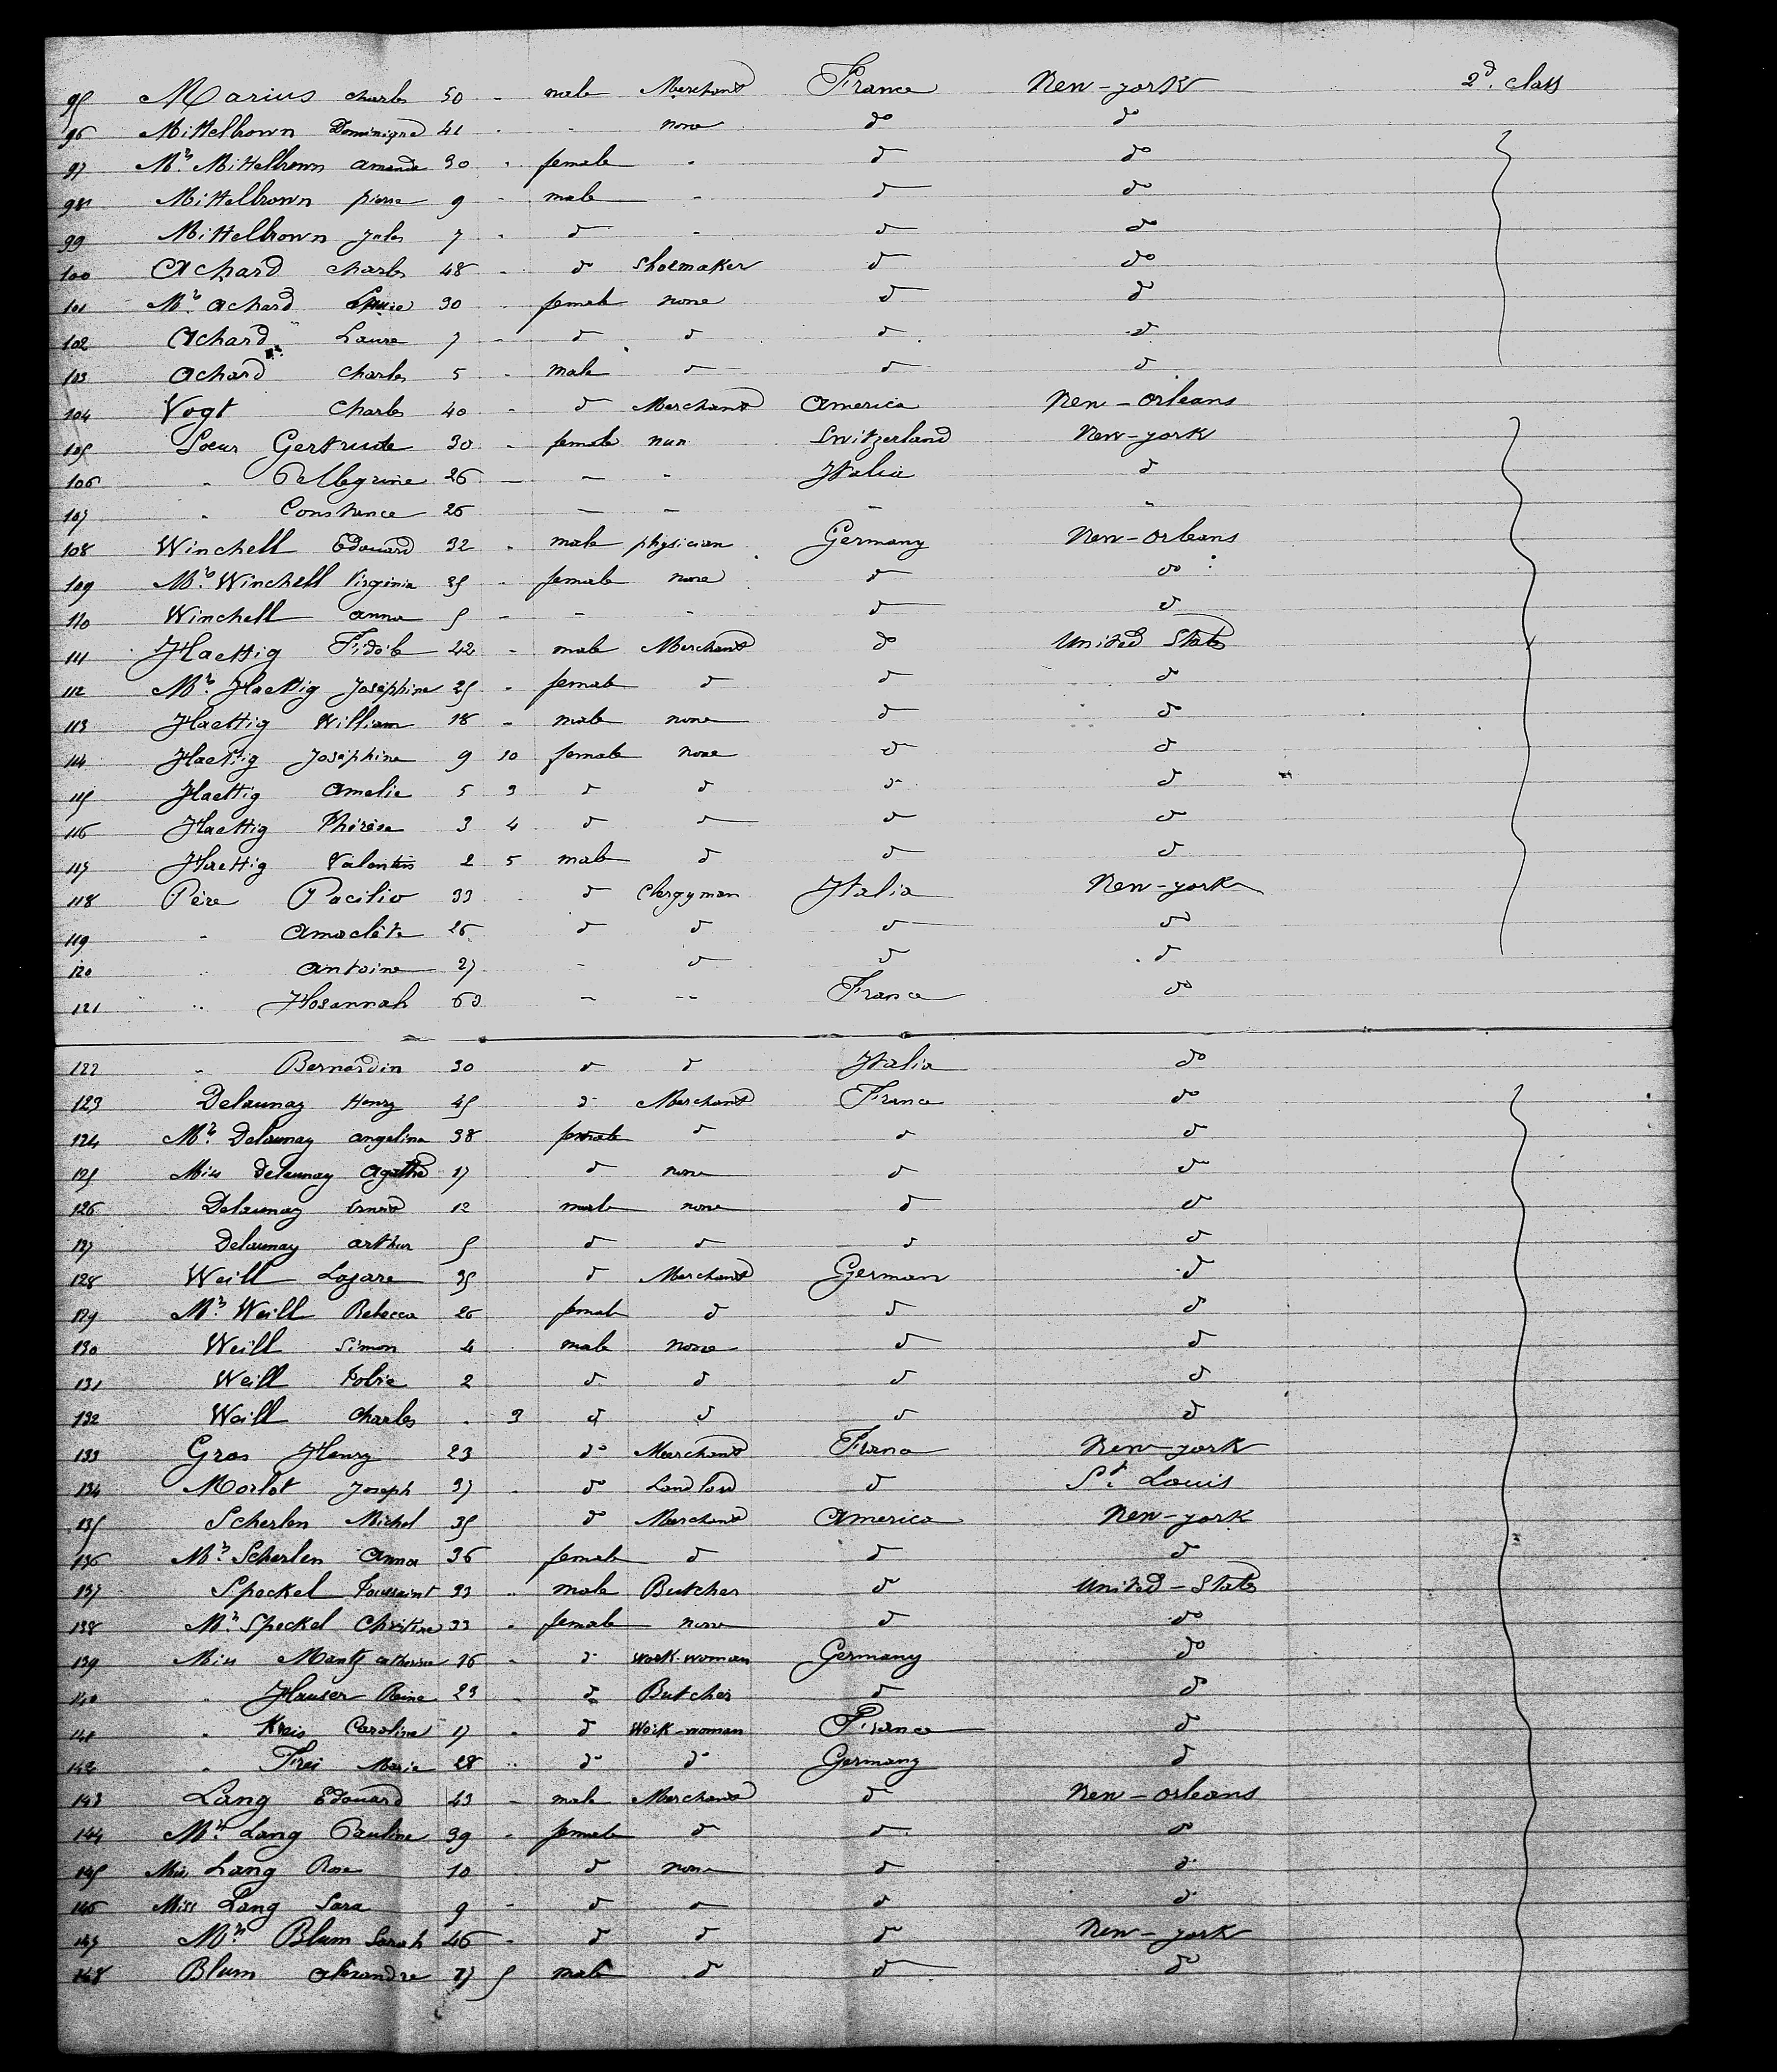 95 Marius Charles 50 - male Merchant France New-york 2d. class
96 Mittelbronn Dominique 41 - - none do do
97 Mrs. Mittelbronn amanda 30 - female - d do
98 Mittelbronn pierre 9 - male - d do
99 Mittelbronn Jules 7 - d - d do
100 Achard Charles 48 - do Shoemaker d do
101 Mrs. Achard Louise 30 female none d d
102 Achard Laura 7 - d d d d
103 Achard Charles 5 - male d d d
104 Vogt Charles 40 - d Merchant America New-Orleans
105 Soeur Gertrude 30 - female nun Switzerland New-york
106 " Pellegrine 26 - - - Italia d
107 " Constance 26 - - - "
108 Winchell Edouard 32 - male physician Germany New-Orleans
109 Mrs. Winchell Virginia 35 - female none d do
110 Winchell anna 5 - - - d d
111 Haettig Fidèle 42 - male Merchant do United States
112 Mrs. Haettig Joséphine 25 - female d d d
113 Haettig William 18 - male none d d
114 Haettig Joséphine 9 10 female none d d
115 Haettig Amelie 5 9 d d d d
116 Haettig Thérèse 3 4 d d d d
117 Haettig Valentin 2 5 male d d d
118 Père Pacifio 33 d Clergyman Italia New-york
119 " Anaclète 26 d d d do
120 " Antoine 27 - d d d
121 " Hosannah 63 - -- France do
122 " Bernardin 30 d d Italia do
123 Delaunay Henry 45 d Merchant France do
124 Mrs. Delaunay angelina 38 female d d d
125 Miss Delaunay Agathe 17 d none d do
126 Delaunay Ernest 12 male none d d
127 Delaunay arthur 5 d d d d
128 Weill Lazare 35 d Merchant German d
129 Mrs. Weill Rebecca 26 female d d d
130 Weill Simon 4 male none d d
131 Weill Tobie 2 d d d d
132 Weill Charles - 3 d d d d
133 Gros Henry 23 do Merchant France New-york
134 Morlot Joseph 37 - do Landlord d St. Louis
135 Scherlen Michel 35 do Merchant America New-york
136 Mrs. Scherlen Anna 36 female d d d
137 Speckel Toussaint 33 - male Butcher d United-States
138 Mrs. Speckel Christine 33 - female none d do
139 Miss Mantz catherine 16 - d work-woman Germany do
140 " Hauser Reine 23 - d Butcher d d
141 " Kreis Caroline 17 - d Work-woman France d
142 " Frei Maria 28 - do do Germany d
143 Lang Edouard 43 - male Merchant d New-Orleans
144 Mrs. Lang Pauline 39 - female d d do
145 Miss Lang Rose 10 d none d d
146 Miss Lang Sara 9 - d d d d
147 Mrs. Blum Sarah 46 - d d d New-york
148 Blum alexandre 17 5 male d d do